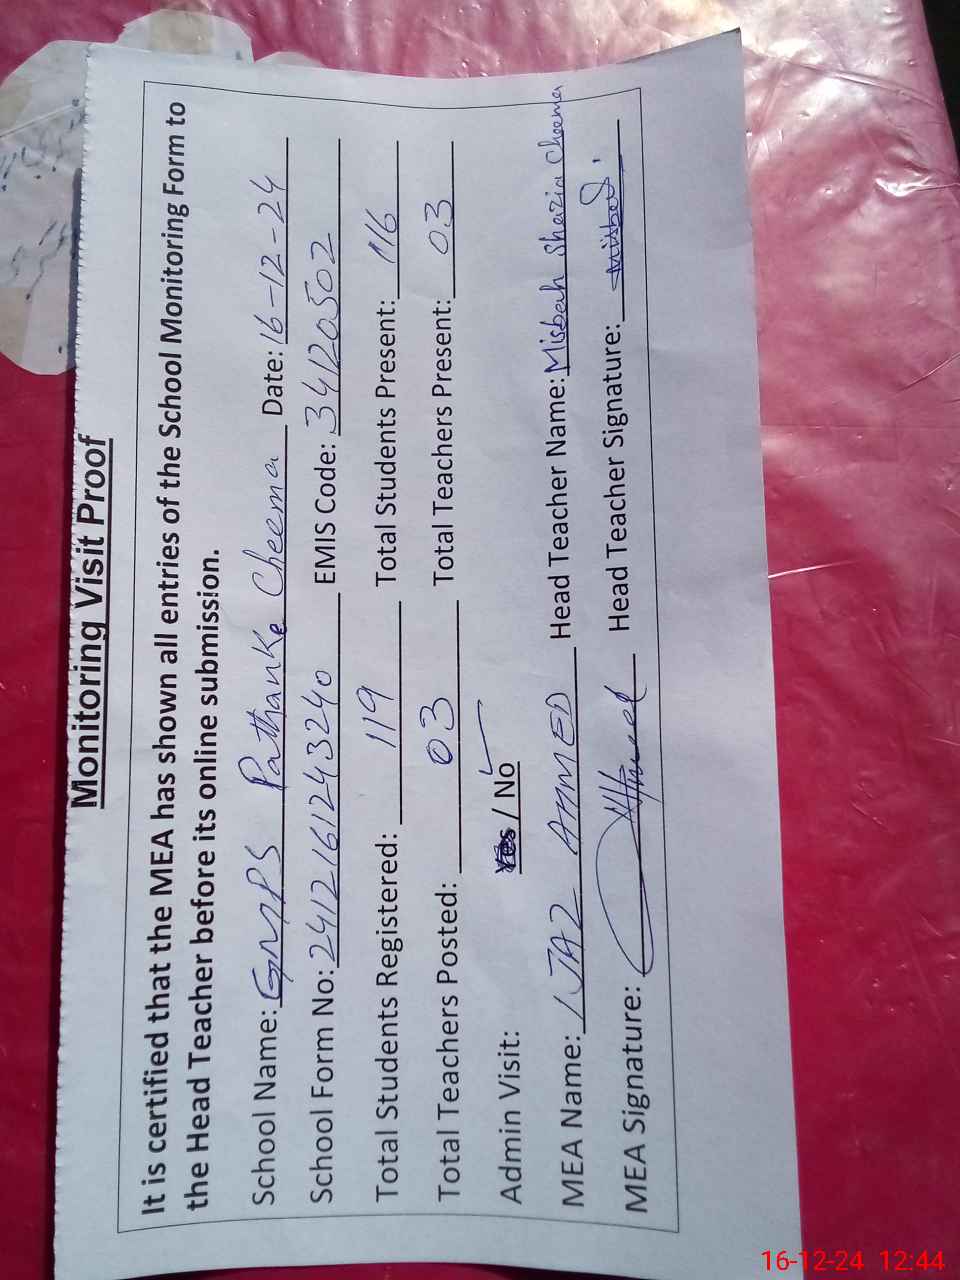 Monitoring Visit Proof
It is certified that the MEA has shown all entries of the School Monitoring Form to
the Head Teacher before its online submission.
School Name: GMPS Pathanke Cheema Date: 16-12-24
School Form No: 2412161243240 EMIS Code: 34120502
Total Students Registered: 119 Total Students Present: 116
Total Teachers Posted: 03 Total Teachers Present: 03
Admin Visit: Yes / No ✓
MEA Name: IJAZ AHMED Head Teacher Name: Misbah Shazia Cheema
MEA Signature: Ahmed Head Teacher Signature: Misbah
16-12-24 12:44